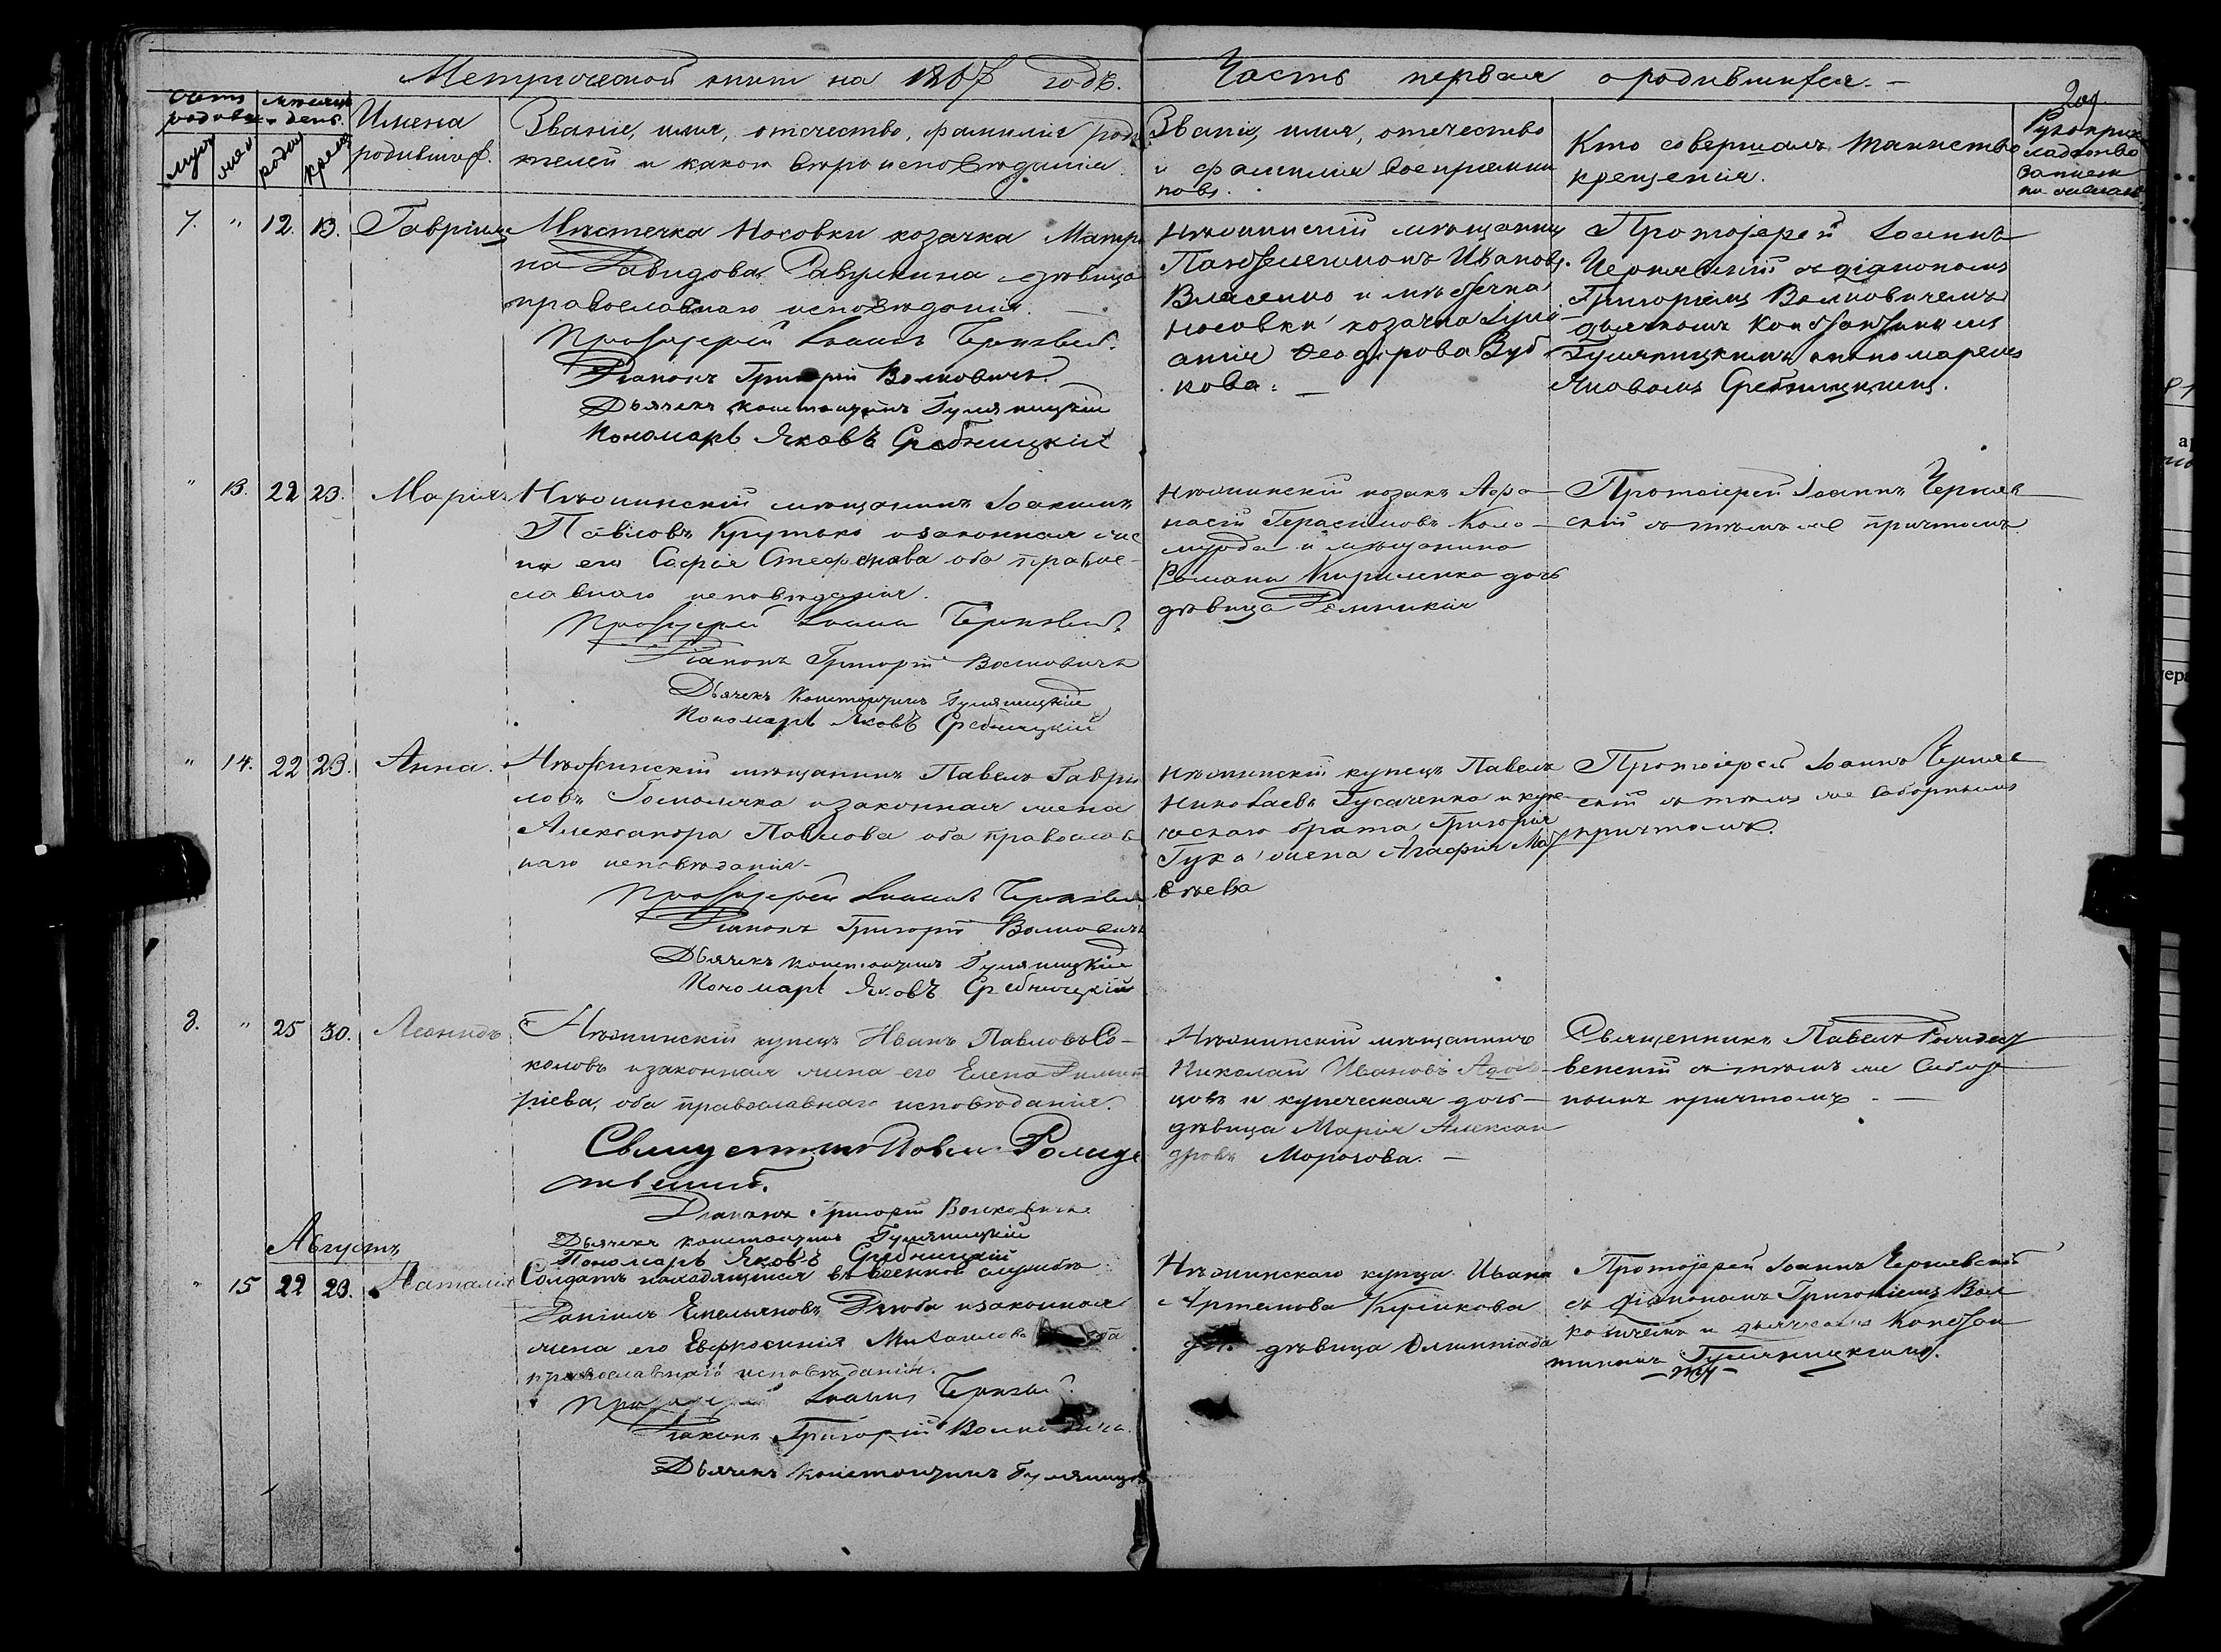 Метрической книги на 1867 годъ.
Часть первая о родившихся.
Счетъ родовъ
мѣсяцъ и день.
Имена родившихся.
Званіе, имя, отчество, фамилія роди
телей и какого вѣроисповѣданія.
Званіе, имя, отечество
и фамилія воспріемни
ковъ.
Кто совершалъ таинство
крещенія.
Рукоприк
ладство
муж
жен
родил
крещ
7. " 12. 13. Гавріилъ
Мѣстечка Носовки козачка Матро
на Давидова дѣвица
православнаго исповѣданія.
Протоіерей Іоаннъ Чернявскій.
Діаконъ Григорій Волковичъ.
Дьячекъ Константинъ Гуляницкій
Пономарь Яковъ Сребницкій
Нѣжинскій мѣщанинъ
Пантелеимонъ Ивановъ
Власенко и мѣстечка
Носовки козачка
Ѳеодорова Зуб
кова.
Протоіерей Іоаннъ
Чернявскій съ діакономъ
Григоріемъ Волковичемъ
дьячкомъ Константиномъ
Гуляницкимъ и пономаремъ
Яковомъ Сребницкимъ.
" 13. 22 23. Марія
Нѣжинскій мѣщанинъ Іоакимъ
Павловъ Крутько и законная же
на его Софія Стефанова оба право
славнаго исповѣданія.
Протоіерей Іоаннъ Чернявскій.
Діаконъ Григорій Волковичъ
Дьячекъ Константинъ Гуляницкій
Пономарь Яковъ Сребницкій
Нѣжинскій козакъ Аѳа
насій Герасимовъ Коло
мурда и мѣщанина
Романа Кириленка дочь
дѣвица
Протоіерей Іоаннъ Черняв
скій съ тѣмъ же причтомъ
" 14. 22 23. Анна.
Нѣжинскій мѣщанинъ Павелъ Гаври
ловъ и законная жена
Александра Павлова оба православ
наго исповѣданія
Протоіерей Іоаннъ Чернявскій
Діаконъ Григорій Волковичъ
Дьячекъ Константинъ Гуляницкій
Пономарь Яковъ Сребницкій
Нѣжинскій купецъ Павелъ
Николаевъ Гусаченко и купе
ческаго брата Григорія
жена Агафія Мат
вѣева
Протоіерей Іоаннъ Черняв
скій съ тѣмъ же соборнымъ
причтомъ.
8. " 25 30. Леонидъ
Нѣжинскій купецъ Иванъ Павловъ Со
коловъ и законная жена его Елена Димит
ріева, оба православнаго исповѣданія.
Священникъ Павелъ Рожде
ственскій.
Діаконъ Григорій Волковичъ
Дьячекъ Константинъ Гуляницкій
Пономарь Яковъ Сребницкій
Нѣжинскій мѣщанинъ
Николай Ивановъ
и купеческая дочь
дѣвица Марія Алексан
дровъ Морозова.
Священникъ Павелъ Рождест
венскій съ тѣмъ же Собор
нымъ причтомъ.
Августъ
" 15 22 23. Наталія
Солдатъ находящійся въ военной службѣ
Даніилъ Емельяновъ и законная
жена его Евфросинія Михаилова оба
православнаго исповѣданія.
Протоіерей Іоаннъ Чернявскій
Діаконъ Григорій Волковичъ.
Дьячекъ Константинъ Гуляницкій
Нѣжинскаго купца Ивана
Артемова Куликова
дочь дѣвица Олимпіада
Протоіерей Іоаннъ Чернявскій
съ діакономъ Григоріемъ Вол
ковичемъ и дьячкомъ Констан
тиномъ Гуляницкимъ.